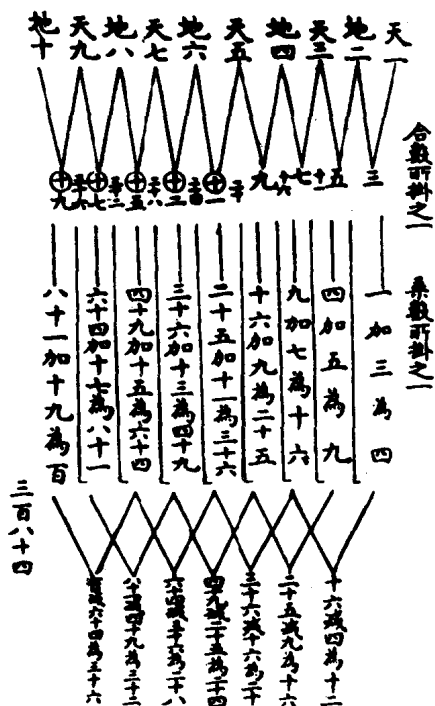 天一
地二
天三
地四
天五
地六
天七
地八
天九
地十
合數所掛之一
三
五
十二
七
十六
九
二十
十一
二十四
十三
二十八
十五
三十二
十七
三十六
十九
乘數所掛之一
一加三為四
四加五為九
九加七為十六
十六加九為二十五
二十五加十一為三十六
三十六加十三為四十九
四十九加十五為六十四
六十四加十七為八十一
八十一加十九為百
十六減四為十二
二十五減九為十六
三十六減十六為二十
四十九減二十五為二十四
六十四減三十六為二十八
八十一減四十九為三十二
百減六十四為三十六
三百八十四